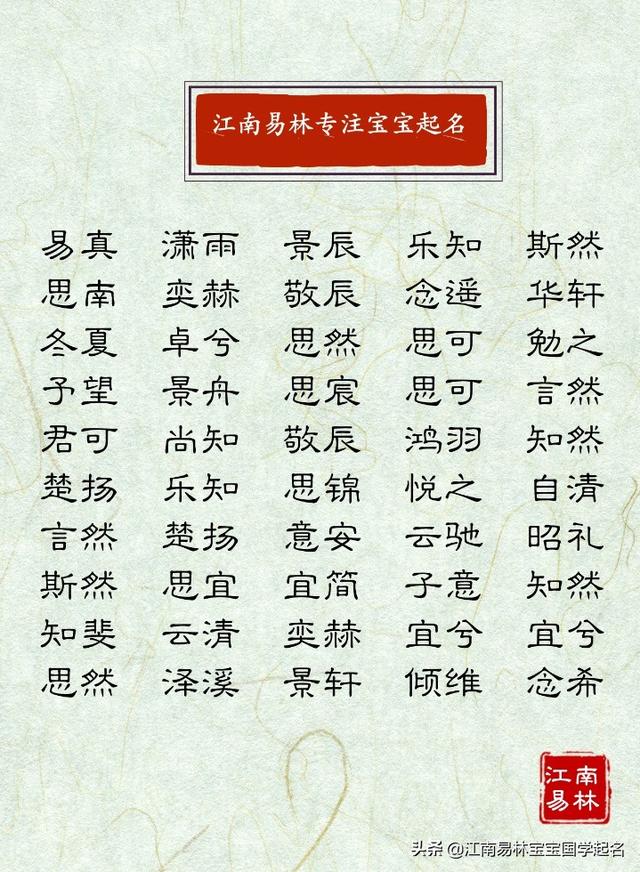 江南易林专注宝宝起名
易真 潇雨 景辰 乐知 斯然
思南 奕赫 敬辰 念遥 华轩
冬夏 卓兮 思然 思可 勉之
予望 景舟 思宸 思可 言然
君可 尚知 敬辰 鸿羽 知然
楚扬 乐知 思锦 悦之 自清
言然 楚扬 意安 云驰 昭礼
斯然 思宜 宜简 子意 知然
知斐 云清 奕赫 宜兮 宜兮
思然 泽溪 景轩 倾维 念希
江南
易林
头条 @江南易林宝宝国学起名